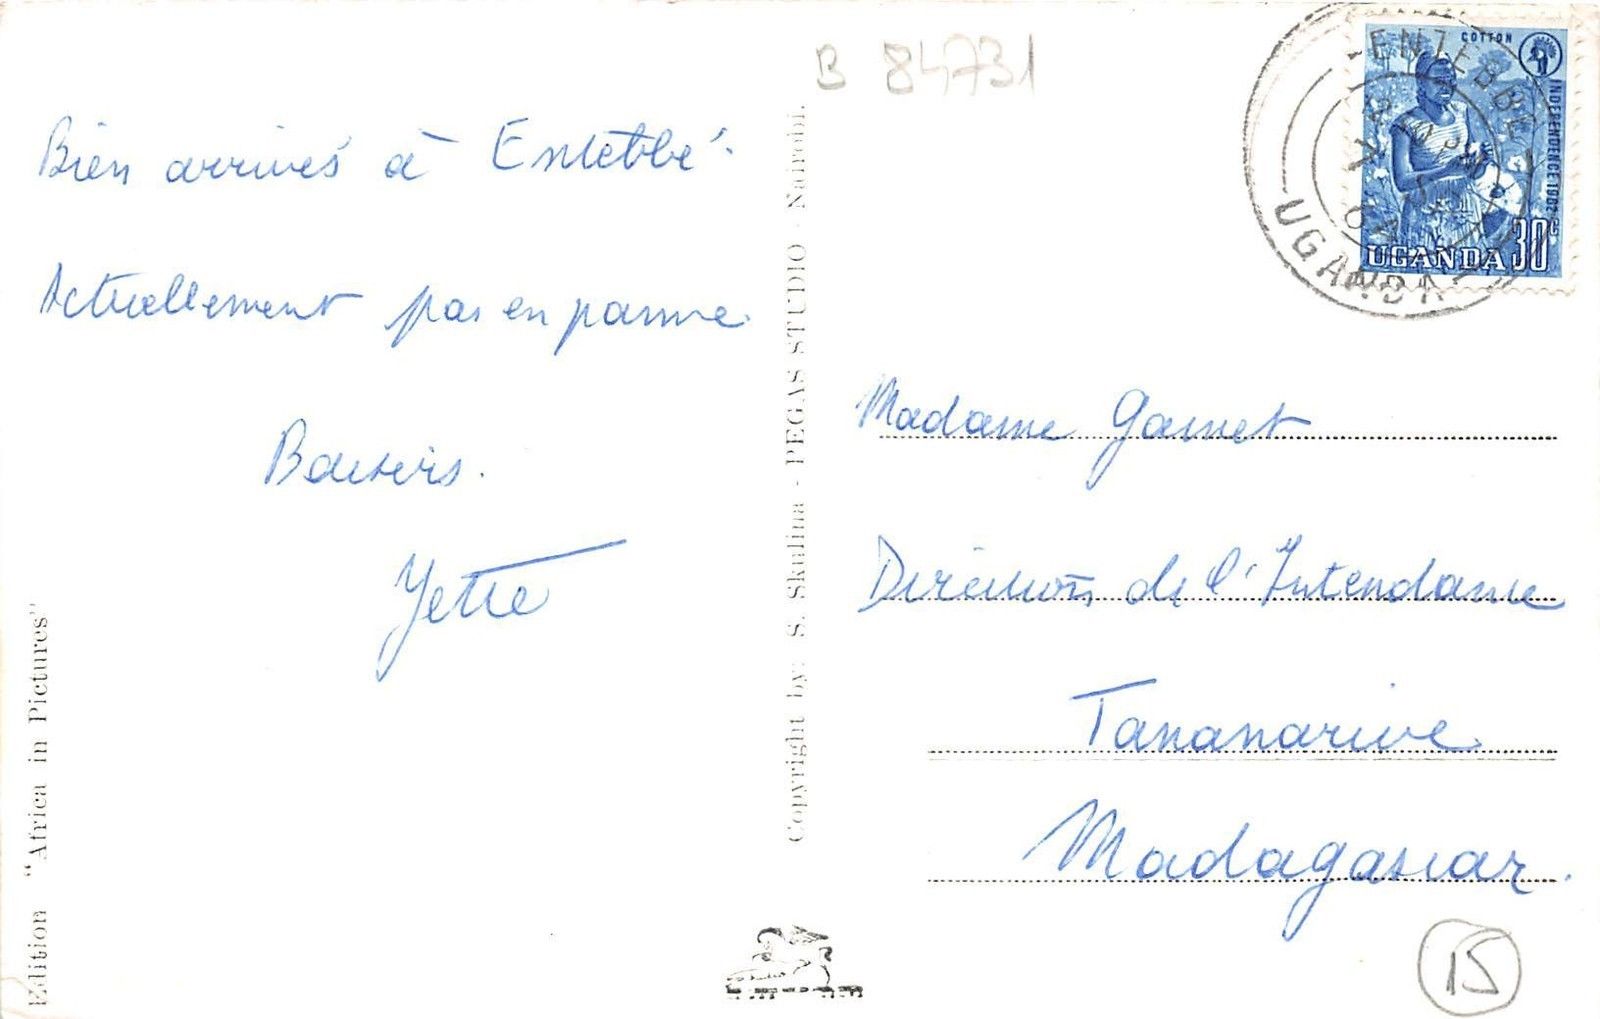 B 84731
Bien arrivés à Entebbé.
Actuellement pas en panne.
Baisers.
Yette
Edition "Africa in Pictures"
Copyright by: S. Skulina - PEGAS STUDIO - Nairobi.
COTTON
INDEPENDENCE 1962
UGANDA 30c
ENTEBBE
UGANDA
Madame Garnet
Direction de l'Intendance
Tananarive
Madagascar.
15